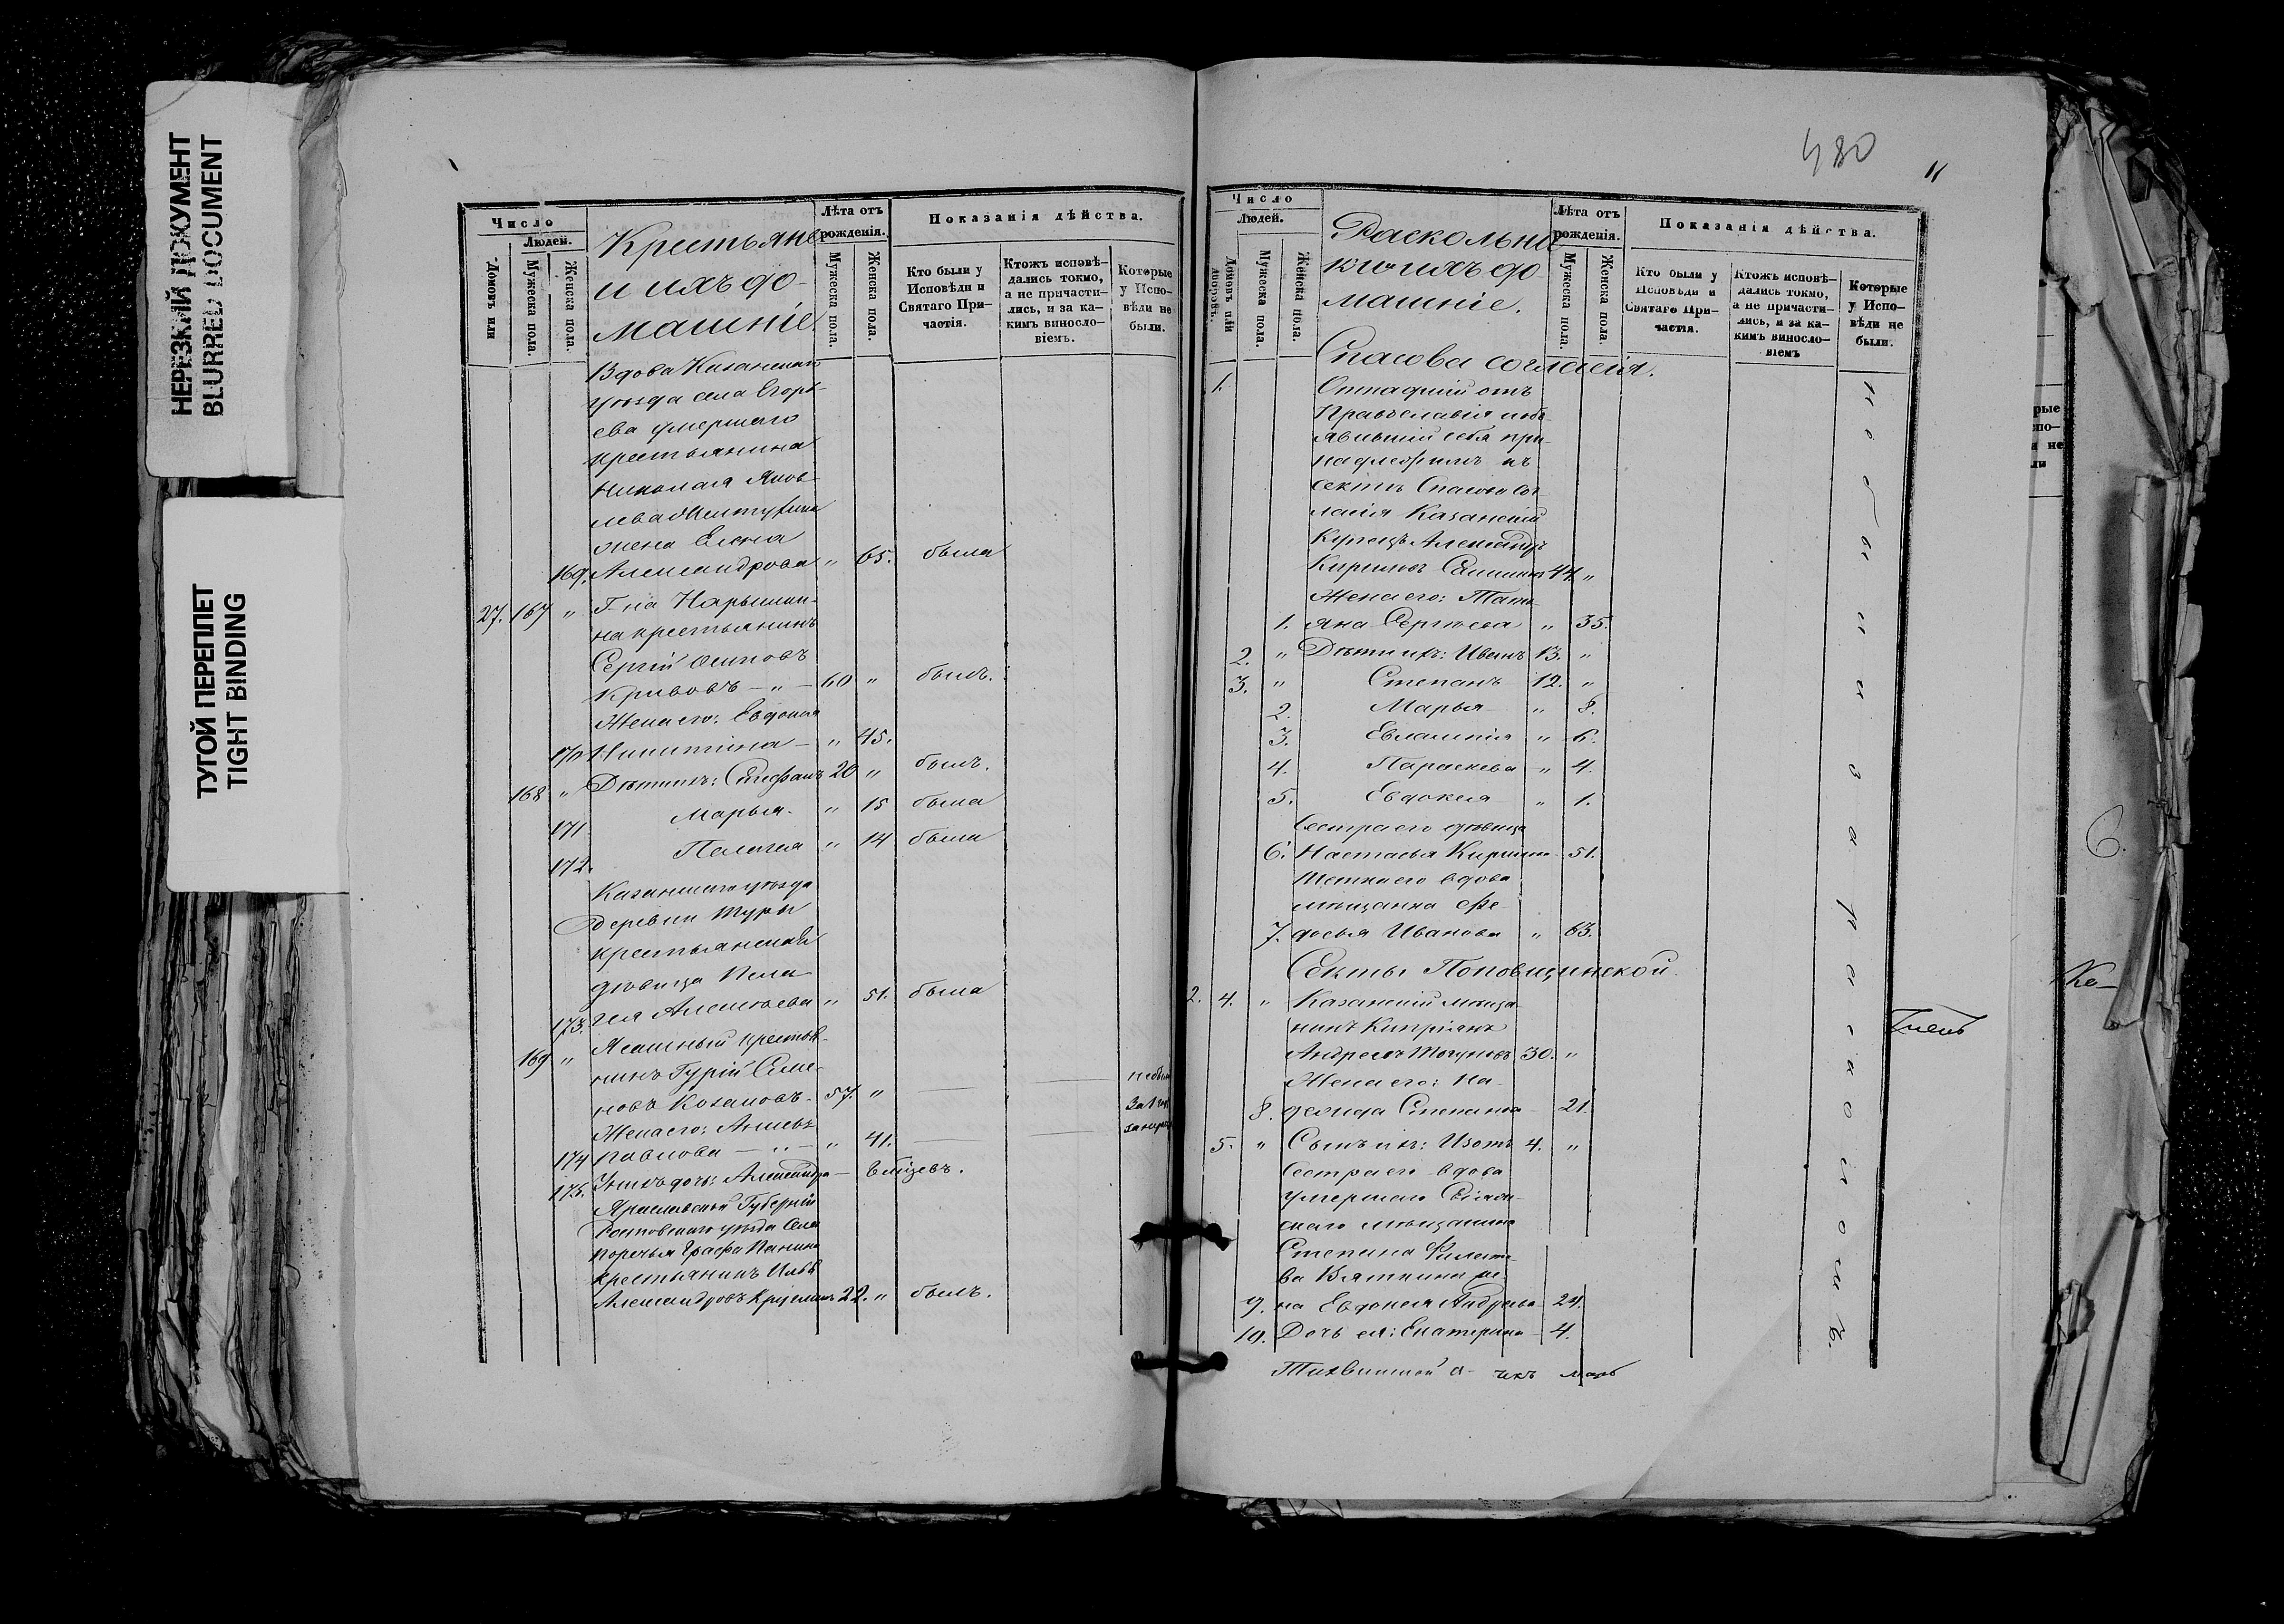 НЕРЕЗКИЙ ДОКУМЕНТ
BLURRED DOCUMENT
ТУГОЙ ПЕРЕПЛЕТ
TIGHT BINDING
Число
Людей.
Домовъ или
Мужеска пола.
Женска пола.
Крестьяне
и ихъ до-
машніе.
Лѣта отъ
рожденія.
Мужеска пола.
Женска пола.
Показанія дѣйства.
Кто были у
Исповѣди и
Святаго При-
частія.
Ктожъ исповѣ-
дались токмо,
а не причасти-
лись, и за ка-
кимъ виносло-
віемъ.
Которые
у Испо-
вѣди не
были.
Вдова Казанскаго
уѣзда села Егорь-
ева умершаго
крестьянина
Николая Яков-
жена Елена
169. Александрова " 65. была
27. 167 " Г-на Нарышки-
на крестьянинъ
Сергій Осиповъ
Кривовъ — " — 60 " былъ.
Жена его: Евдокия
170 Никитина — " 45.
168 " Дѣти ихъ: Стефанъ 20 " былъ.
171 Марья. " 15 была
172. Пелагея " 14 была
Казанскаго уѣзда
деревни Туры
крестьянская
дѣвица Пела-
173. гея Алексѣева " 51. была
169 " Ясашный крестья-
нинъ Гурій Семе-
новъ Козаковъ. 57. "
Жена его:
174 Павлова — " — " 41.
175. У нихъ дочь: Александра —
Ярославской Губерніи
Ростовскаго уѣзда села
Поречья Графа Панина
крестьянинъ Илья
Александровъ 22. " былъ.
480
11
Число
Людей.
Домовъ или
дворовъ.
Мужеска пола.
Женска пола.
Раскольни
ки и ихъ до
машніе.
Лѣта отъ
рожденія.
Мужеска пола.
Женска пола.
Показанія дѣйства.
Кто были у
Исповѣди и
Святаго При-
частія.
Ктожъ исповѣ-
дались токмо,
а не причасти-
лись, и за ка-
кимъ виносло-
віемъ
Которые
у Испо-
вѣди не
были.
Спасова согласія.
1. Отпадшій отъ
Православія и объ-
явившій себя при-
надлежимъ къ
сектѣ Спасова Сог-
ласія Казанскій
Купецъ Александръ
Кириловъ 44. "
Жена его: Тать-
1. яна Сергѣева " 35.
2. " Дѣти ихъ: Иванъ 13. "
3. " Степанъ 12. "
2. Марья " 8.
3. Евлампія " 6.
4. Параскева " 4.
5. Евдокея " 1.
Сестра его дѣвица
6. Настасья Кирилова 51.
Тетка его вдова
мѣщанка Фе-
7. досья Иванова " 63.
Секты Поповщинской.
2. 4. " Казанскій мѣща-
нинъ Кипріянъ
Андреевъ 30. "
Жена его: На-
8. дежда Степанова 21.
5. " Сынъ ихъ: Изотъ 4. "
Сестра его вдова
умершаго
скаго мѣщанина
Степана Филато-
ва Вяткина же-
9. на Евдокея Андреева 24.
10. Дочь ея: Екатерина — 4.
не были за расколомъ.
Тихвинской
рые
спо-
и не
ли